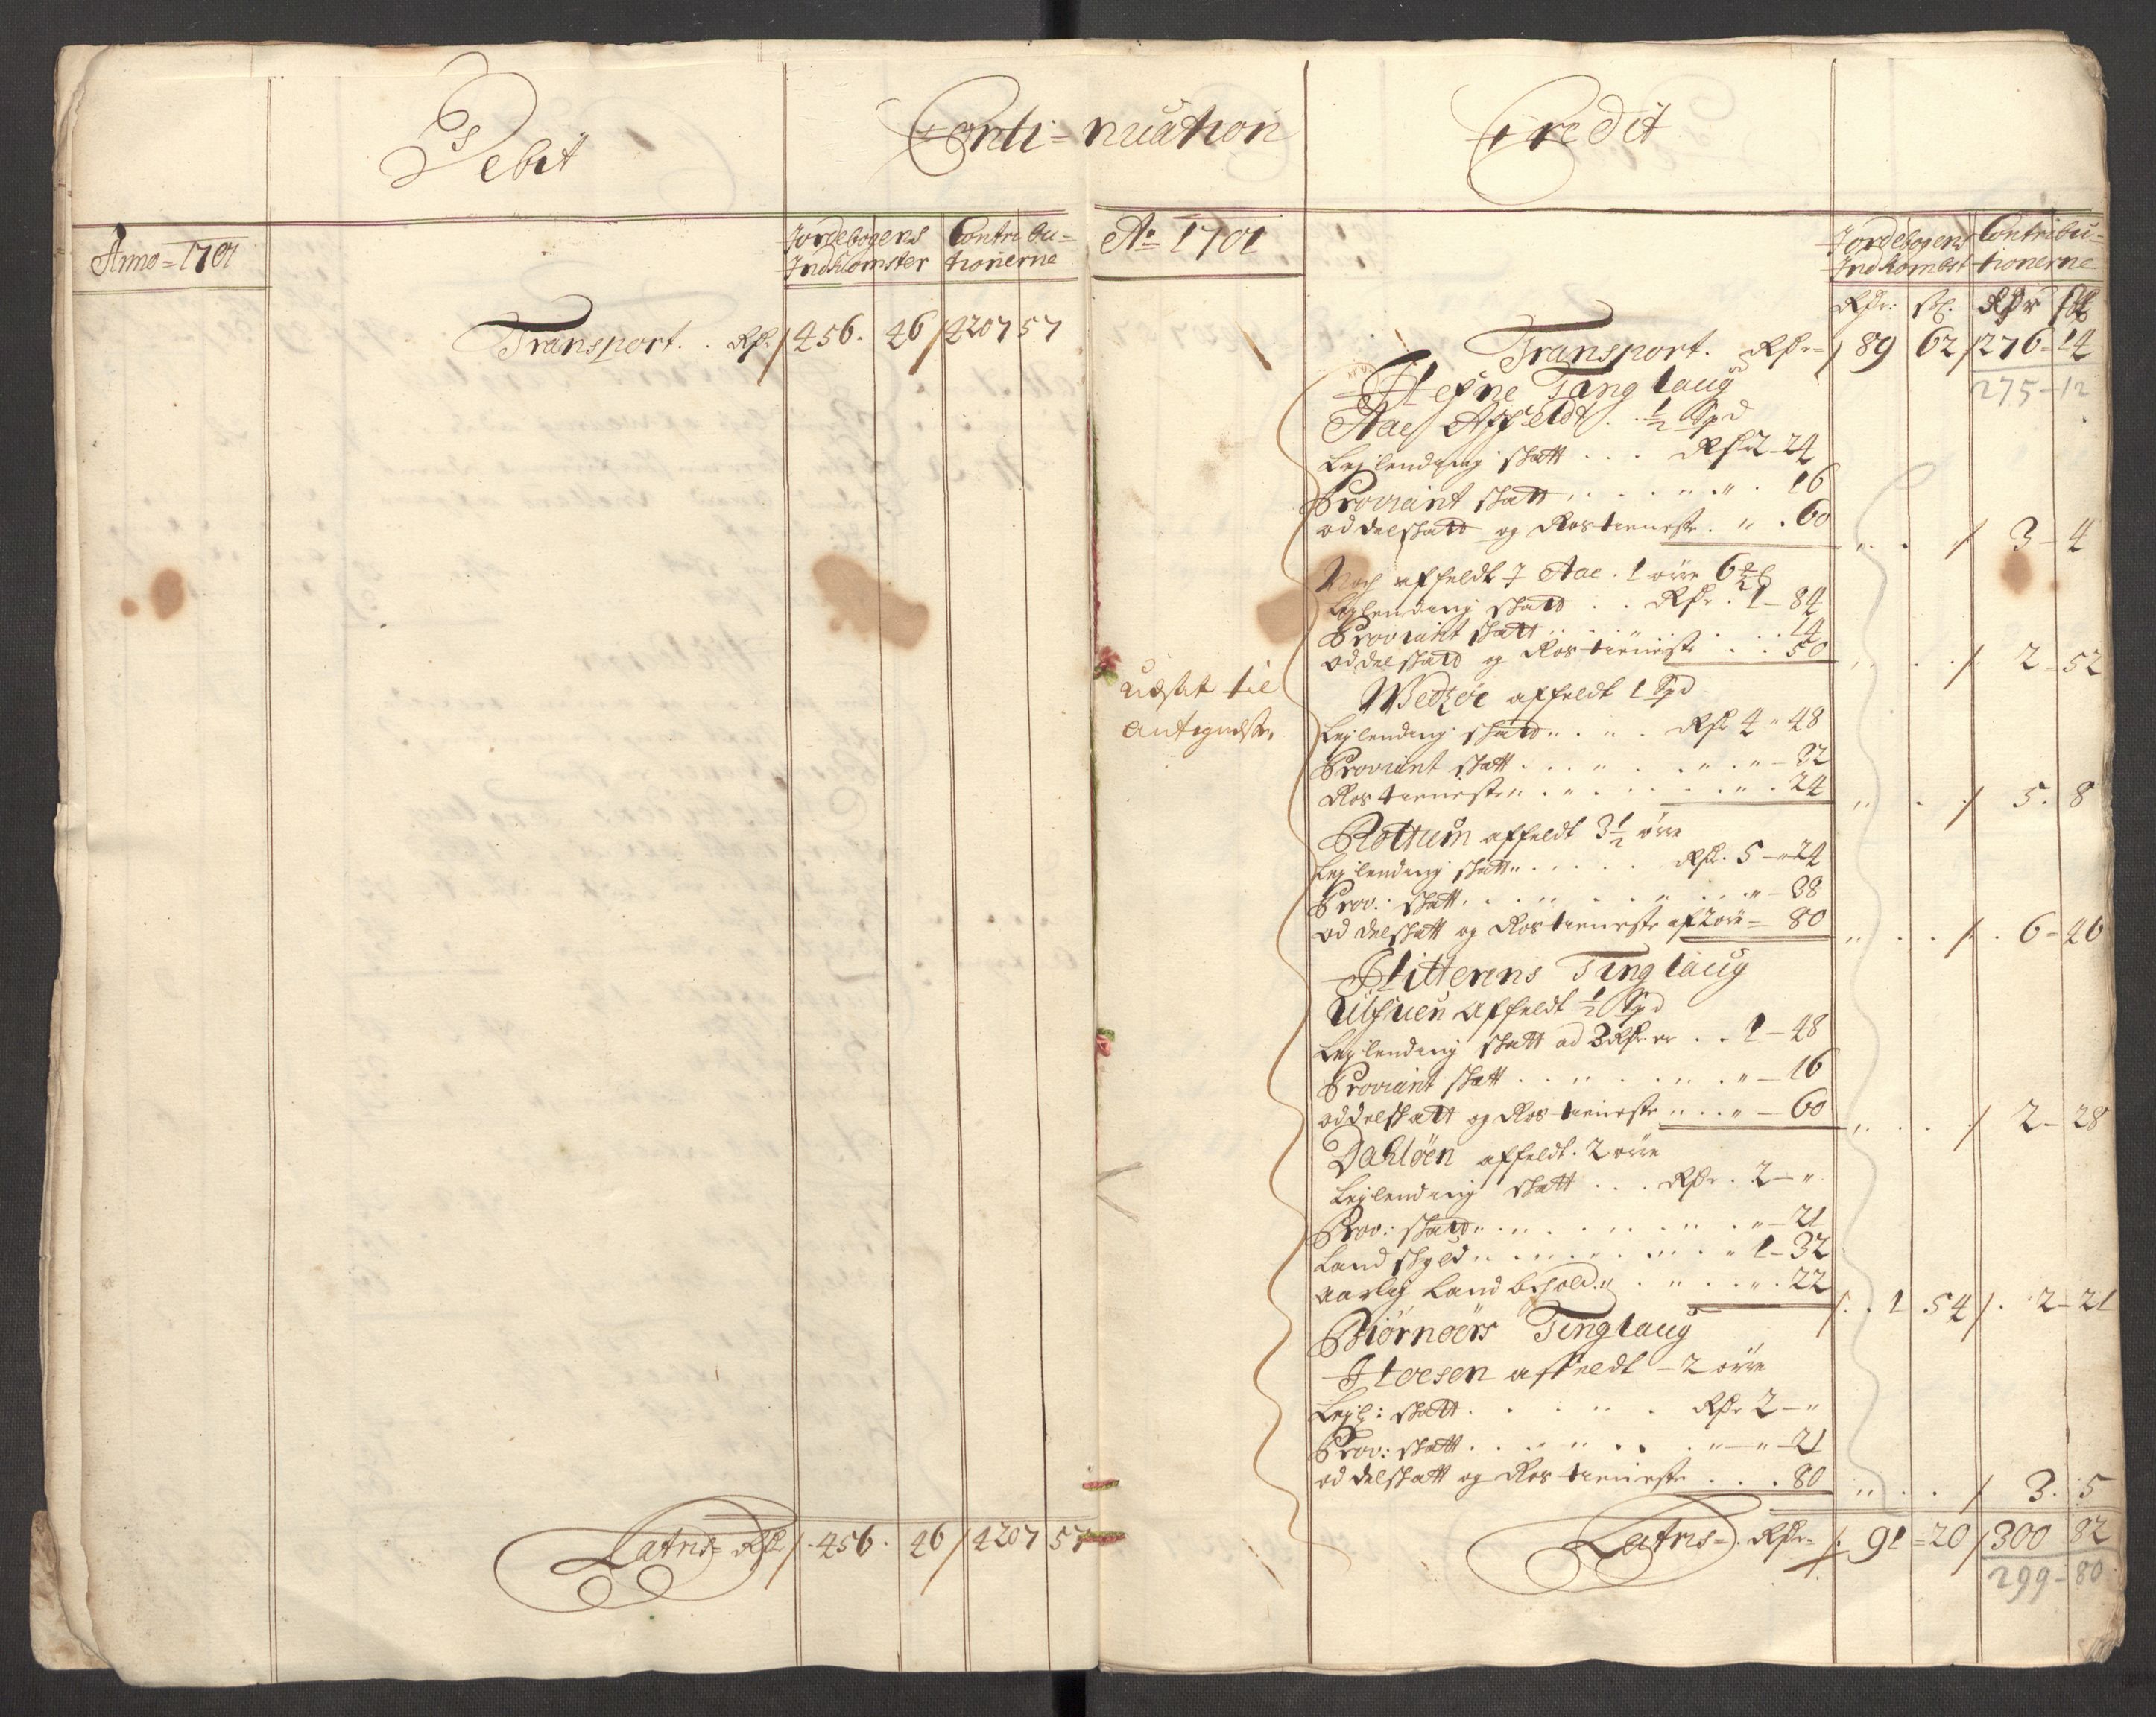 Debet
Conti=
Anno=1701
Jordebogens Contribu=
Indkomster tionerne
Transport. . Rdr 456. 46 4207 57
Latris= Rdr 456. 46 4207 57
nuation
Credit
Ao 1701
Jordebogens Contribu=
Indkombst tionerne
Rdr: ß. Rdr ß
Transport. Rdr= 89 62 276-14
275-12
Hefne Ting laug
Aae Affeldt . ½ Spd
Leylending skatt . . . Rdr 2-24
Proviant skatt . . . . 16
oddelskatt og Rostieneste . „ . 60 „ . . 3-4
Noch affeldt i Aae . 1 øre 6
Leylending skatt . . Rdr . 1-84
Proviant skatt . . . 14
oddelskatt og Rostieneste . . 50 „ . . 2-52
udsat til
antegnelse
Wedzøe affeldt 1 Spd
Leylending skatt . . . Rdr 4 „ 48
Proviant skatt . . . „ - 32
Rostieneste . . . . 24 „ . . 5. 8
Rottum affeldt 3½ øre
Leylending skatt . . . Rdr. 5-24
Prov: skatt . . . „ - 38
oddelskatt og Rostieneste af 2 øre = 80 „ . . 6-46
Hitterens Ting laug
Ulfuen affeldt ½ Spd
Leylending skatt ad 3 Rdr er . . 1-48
Proviant skatt . . . „ - 16
oddelskatt og Rostieneste . . „ - 60 „ . . 2-28
Dahløen affeldt . 2 øre
Leylending skatt . . . Rdr . 2 - „
Prov: skatt . . . „ - 21
Landskyld . . . „ 1-32
aarlig Landbohold . . . 22 . 1 54 . 2-21
Biørnøers Tinglaug
Hoesen affeldt - 2 øre
Leyl: skatt . . . Rdr 2 - „
Prov: skatt . . . „ - „ - 21
oddelskatt og Rostieneste . . . 80 „ . . 3. 5
Latris= . Rdr= 91=20 300 82
299-80